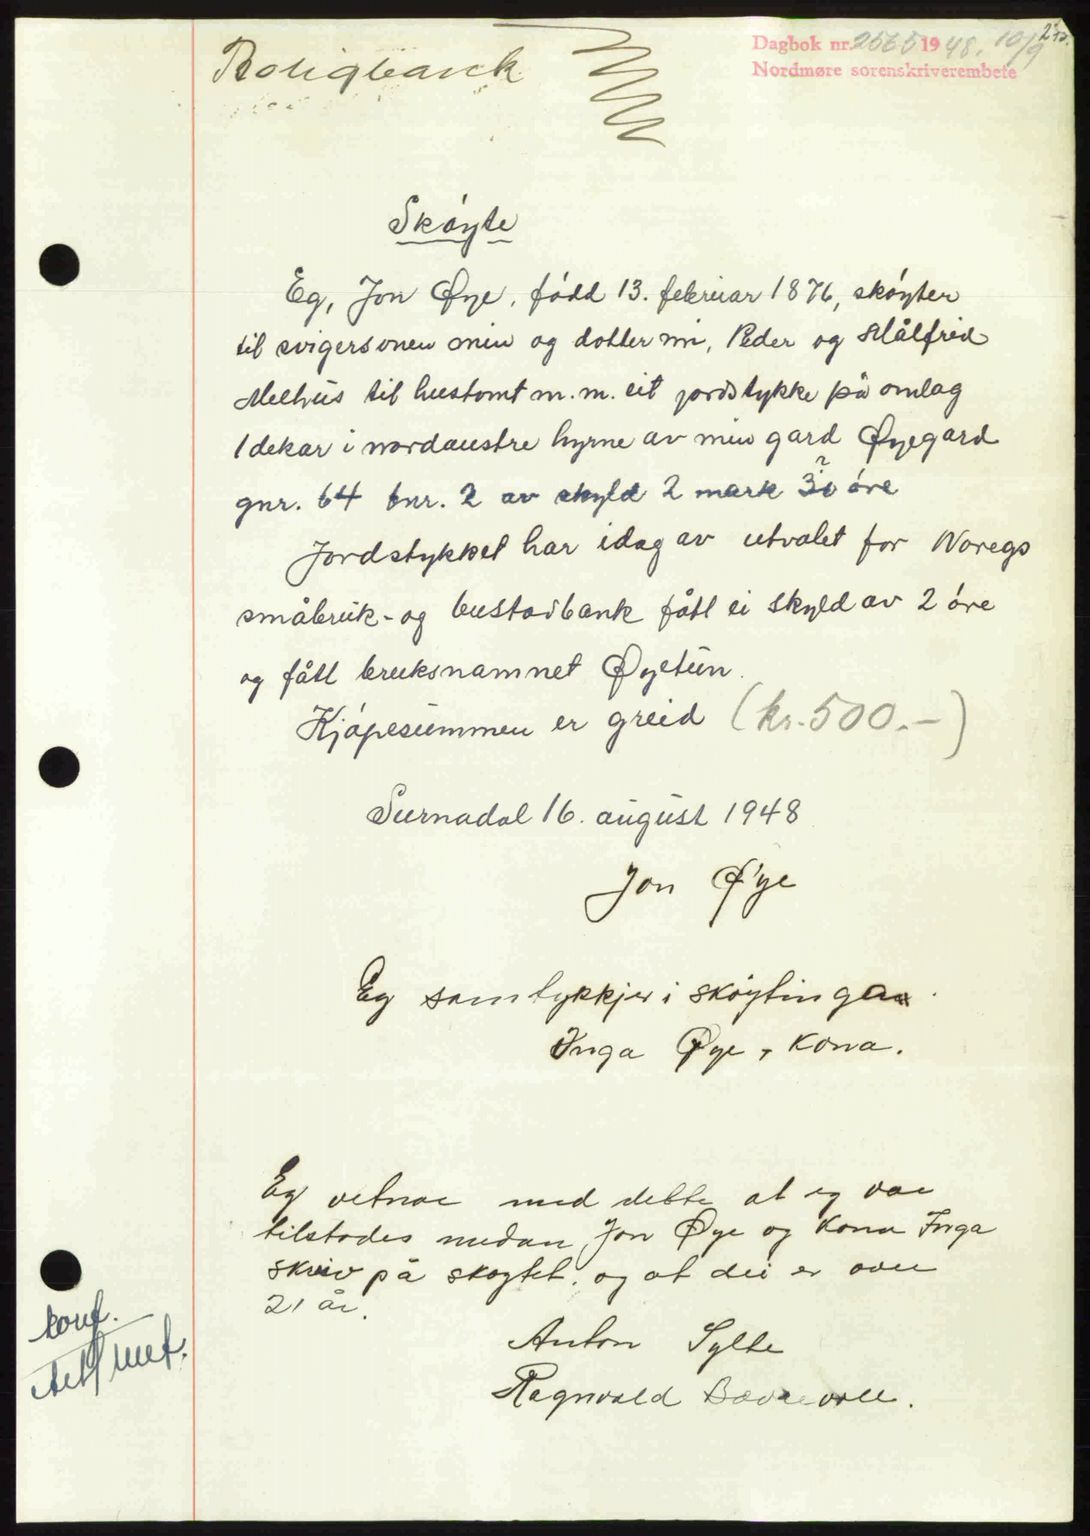 Boligbank
Dagbok nr. 2565 1948. 10/9
Nordmøre sorenskriverembete
Skøyte
Eg, Jon Øye, fødd 13. februar 1876, skøyter
til svigersonen min og dotter mi, Peder og Målfrid
Melhus til hustomt m.m. eit jordstykke på omlag
1 dekar i nordaustre hyrne av min gard Øyegard
gnr. 64 bnr. 2 av skyld 2 mark 30 øre
Jordstykket har idag av utvalet for Noregs
småbruk- og bustadbank fått ei skyld av 2 øre
og fått bruksnamnet Øyetun.
Kjøpesummen er greid (kr. 500.-)
Surnadal 16. august 1948
Jon Øye
Eg samtykkjer i skøytinga.
Inga Øye, kona.
Eg vitnar med dette at eg var
tilstades medan Jon Øye og kona Inga
skreiv på skøytet, og at dei er over
21 år.
Anton Sylte
Ragnvald Bævrevoll.
konf.